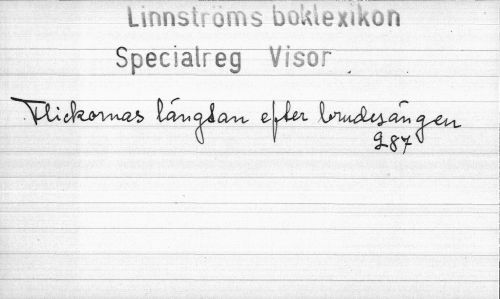 Linnströms boklexikon
Specialreg Visor
Flickornas längtan efter brudesängen
287